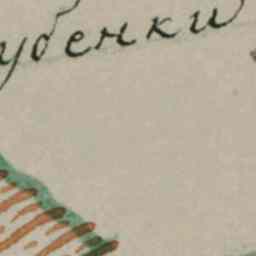 убенки